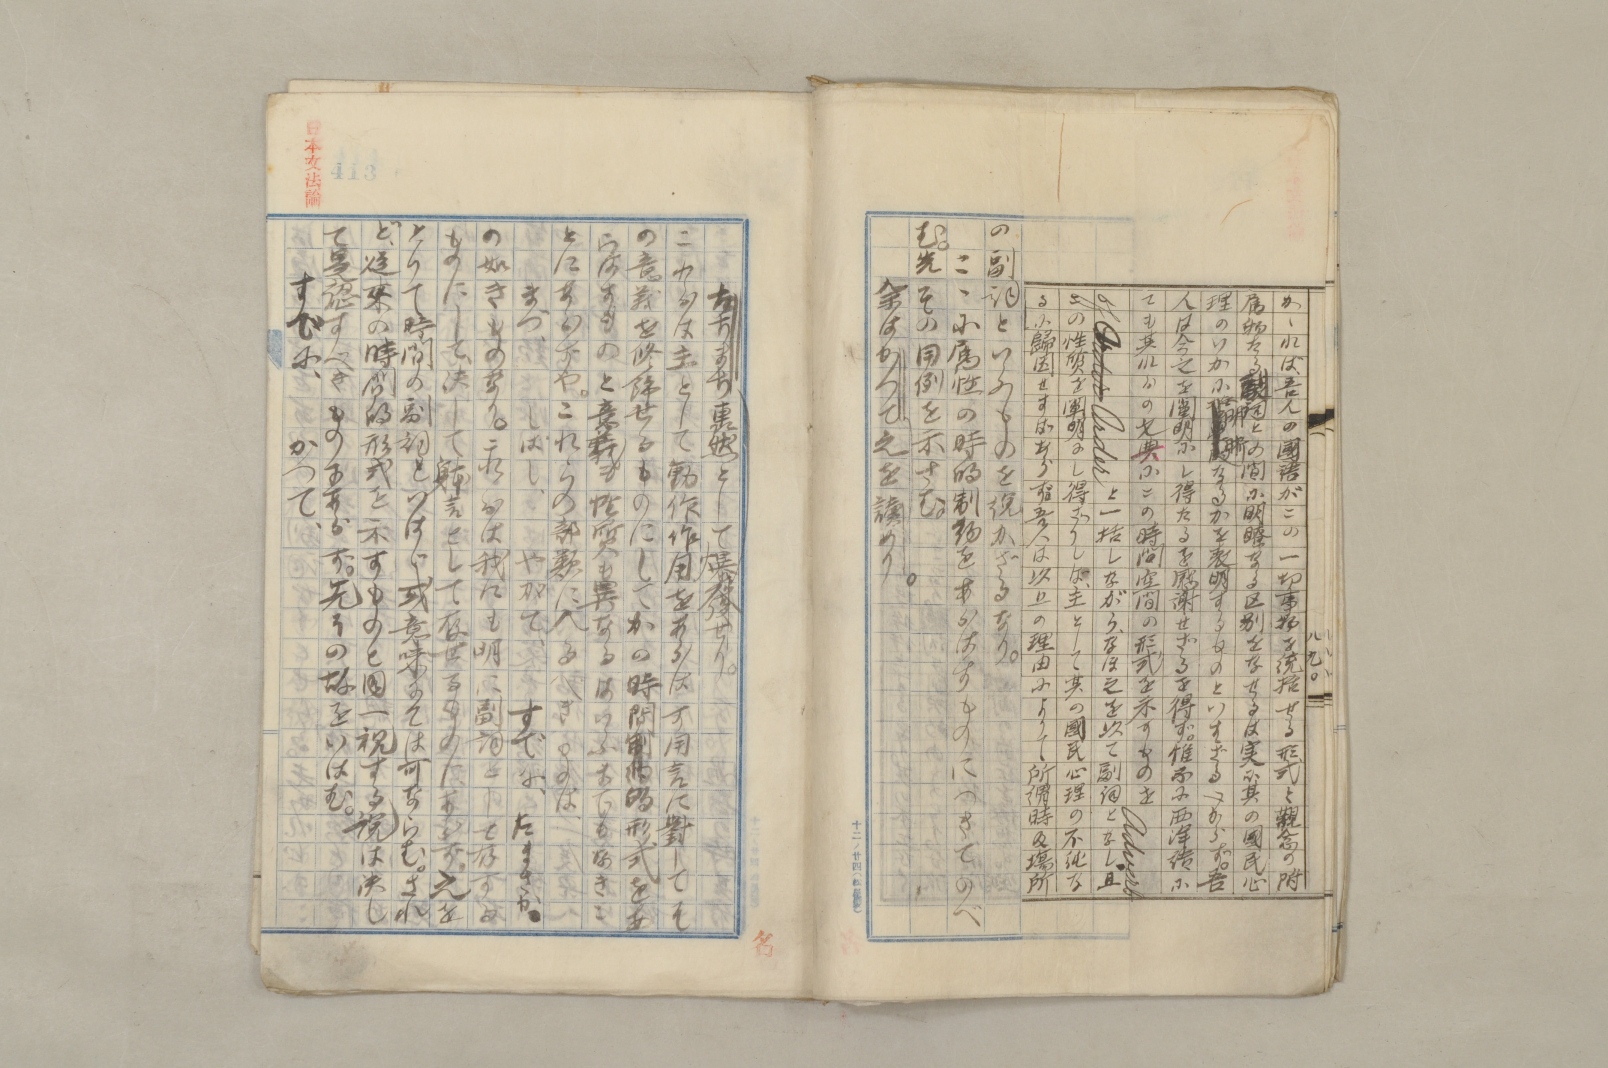 八九〇
かゝれば吾人の國語がこの一切事物を統括せる形式と觀念の附
屬物たる副詞との間に明瞭なる区別をなせるは実に其の國民心
理のいかに なるかを表明するものといはざるべからず。吾
人は今之を闡明にし得たるを感謝せざるを得ず。惟ふに西洋語に
ても其れらの文典にこの時間空間の形式を示すものを Adverb
of Order と一括しながらなほ之を以て副詞となし且
その性質を闡明にし得ざりしは、主として其の國民心理の不純な
るに歸因せずばあらず。吾人は以上の理由によりて所謂時及場所
の副詞といふものを説かざるなり。
こゝに属性の時的制約をあらはすものにつきてのべ
む。先その用例を示さむ。
余はかつて之を讀めり。
日本文法論
413
たちまち轟然として爆發せり。
これらは主として動作作用をあらはす用言に對してそ
の意義を修飾せるものにしてかの時間的形式をあ
らはすものと意義も性質も異なるはいふまでもなきこ
とにあらずや。これらの部類に入るべきものは、
まづ、しばし、やがて、すでに、たまさか。
の如きものなり。これらは我にも明に副詞として存する
ものにして、決して體言として存せるものにあらず。之を
とりて時間の副詞といはば或意味にては可ならむ。され
ど、從來の時間的形式を示すものと同一視する説は決し
て是認すべきものにあらず。先その故をいはむ。
すでに、かつて、
名